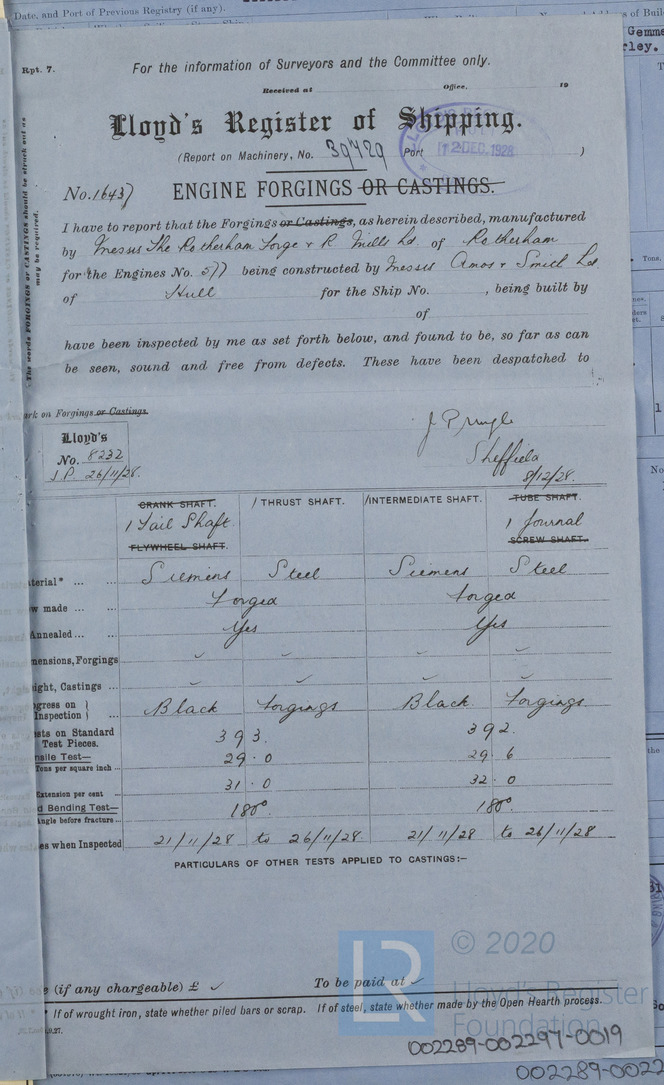 Date, and Port of Previous Registry (if any).
Rpt. 7.
For the information of Surveyors and the Committee only.
Received at Office, 19
Lloyd's Register of Shipping.
(Report on Machinery, No. 39729 Port )
12 DEC. 1928
No. 16437 ENGINE FORGINGS OR CASTINGS.
I have to report that the Forgings or Castings, as herein described, manufactured
by Messrs The Rotherham Forge & R Mills Ld of Rotherham
for the Engines No. 577 being constructed by Messrs Amos & Smith Ld
of Hull for the Ship No. , being built by
of
have been inspected by me as set forth below, and found to be, so far as can
be seen, sound and free from defects. These have been despatched to
The words FORGINGS or CASTINGS should be struck out as
may be required.
ark on Forgings or Castings.
Lloyd's
No. 8232
J.P. 26/11/28.
J Pringle
Sheffield
8/12/28.
CRANK SHAFT. 1 THRUST SHAFT. 1 INTERMEDIATE SHAFT. TUBE SHAFT.
1 Tail Shaft 1 Journal
FLYWHEEL SHAFT. SCREW SHAFT.
terial* ... ... Siemens Steel Siemens Steel
w made ... ... Forged Forged
Annealed ... ... Yes Yes
mensions, Forgings
ight, Castings ...
ogress on
Inspection ... Black Forgings Black Forgings
sts on Standard
Test Pieces. 393. 392.
nsile Test— 29.0 29.6
Tons per square inch ...
Extension per cent ... 31.0 32.0
d Bending Test— 180° 180°
Angle before fracture ...
es when Inspected 21/11/28 to 26/11/28. 21/11/28 to 26/11/28
PARTICULARS OF OTHER TESTS APPLIED TO CASTINGS:—
e (if any chargeable) £ To be paid at
* If of wrought iron, state whether piled bars or scrap. If of steel, state whether made by the Open Hearth process.
© 2020
LR
Lloyd's Register
Foundation
002289-002297-0019
002289-0022